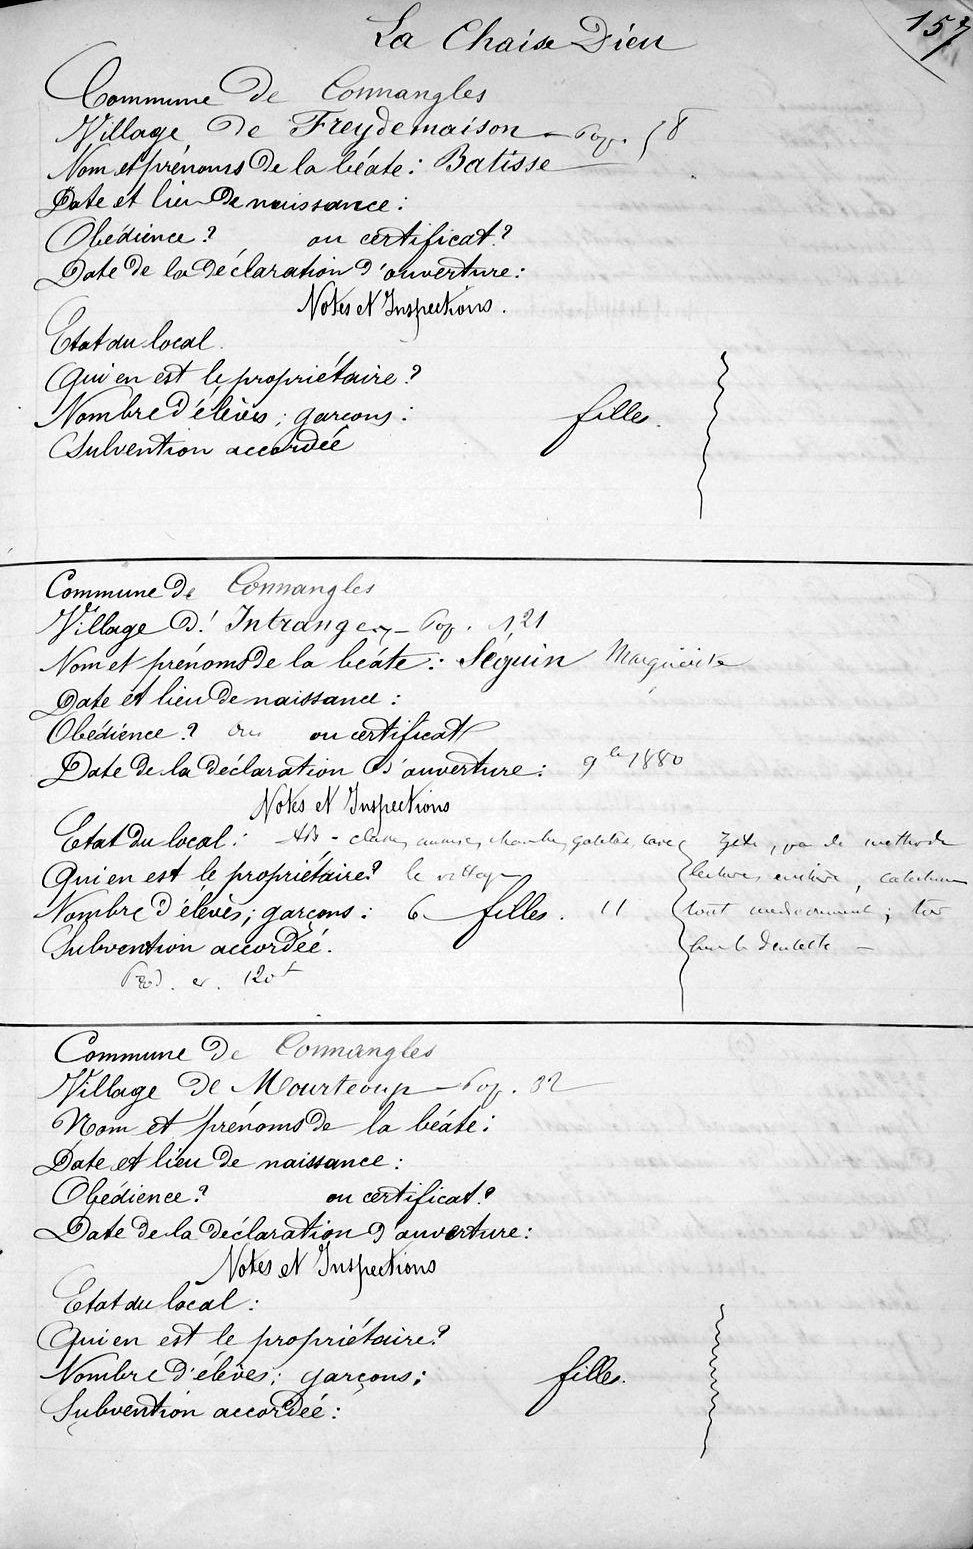 157
La Chaise Dieu
Commune de Connangles
Village de Freydemaison - Pop. 58
Nom et prénoms de la béate : Batisse
Date et lieu de naissance :
Obédience ? ou certificat ?
Date de la déclaration d'ouverture :
Notes et Inspections.
Etat du local
Qui en est le propriétaire ?
Nombre d'élèves ; garçons : filles.
Subvention accordée
Commune de Connangles
Village d' Intranges - Pop. 121
Nom et prénoms de la béate : Séguin Marguerite
Date et lieu de naissance :
Obédience ? oui ou certificat
Date de la déclaration d'ouverture : 9bre 1880
Notes et Inspections
Etat du local : AB - classe, cave zélée, pas de méthode
Qui en est le propriétaire ? le village lecture, écriture,
Nombre d'élèves ; garçons : 6 filles. 11 tout médiocrement ;
Subvention accordée. la dentelle -
120f
Commune de Connangles
Village de Mourtoup - Pop. 32
Nom et prénoms de la béate :
Date et lieu de naissance :
Obédience ? ou certificat ?
Date de la déclaration d'ouverture :
Notes et Inspections
Etat du local :
Qui en est le propriétaire ?
Nombre d'élèves ; garçons ; filles.
Subvention accordée :